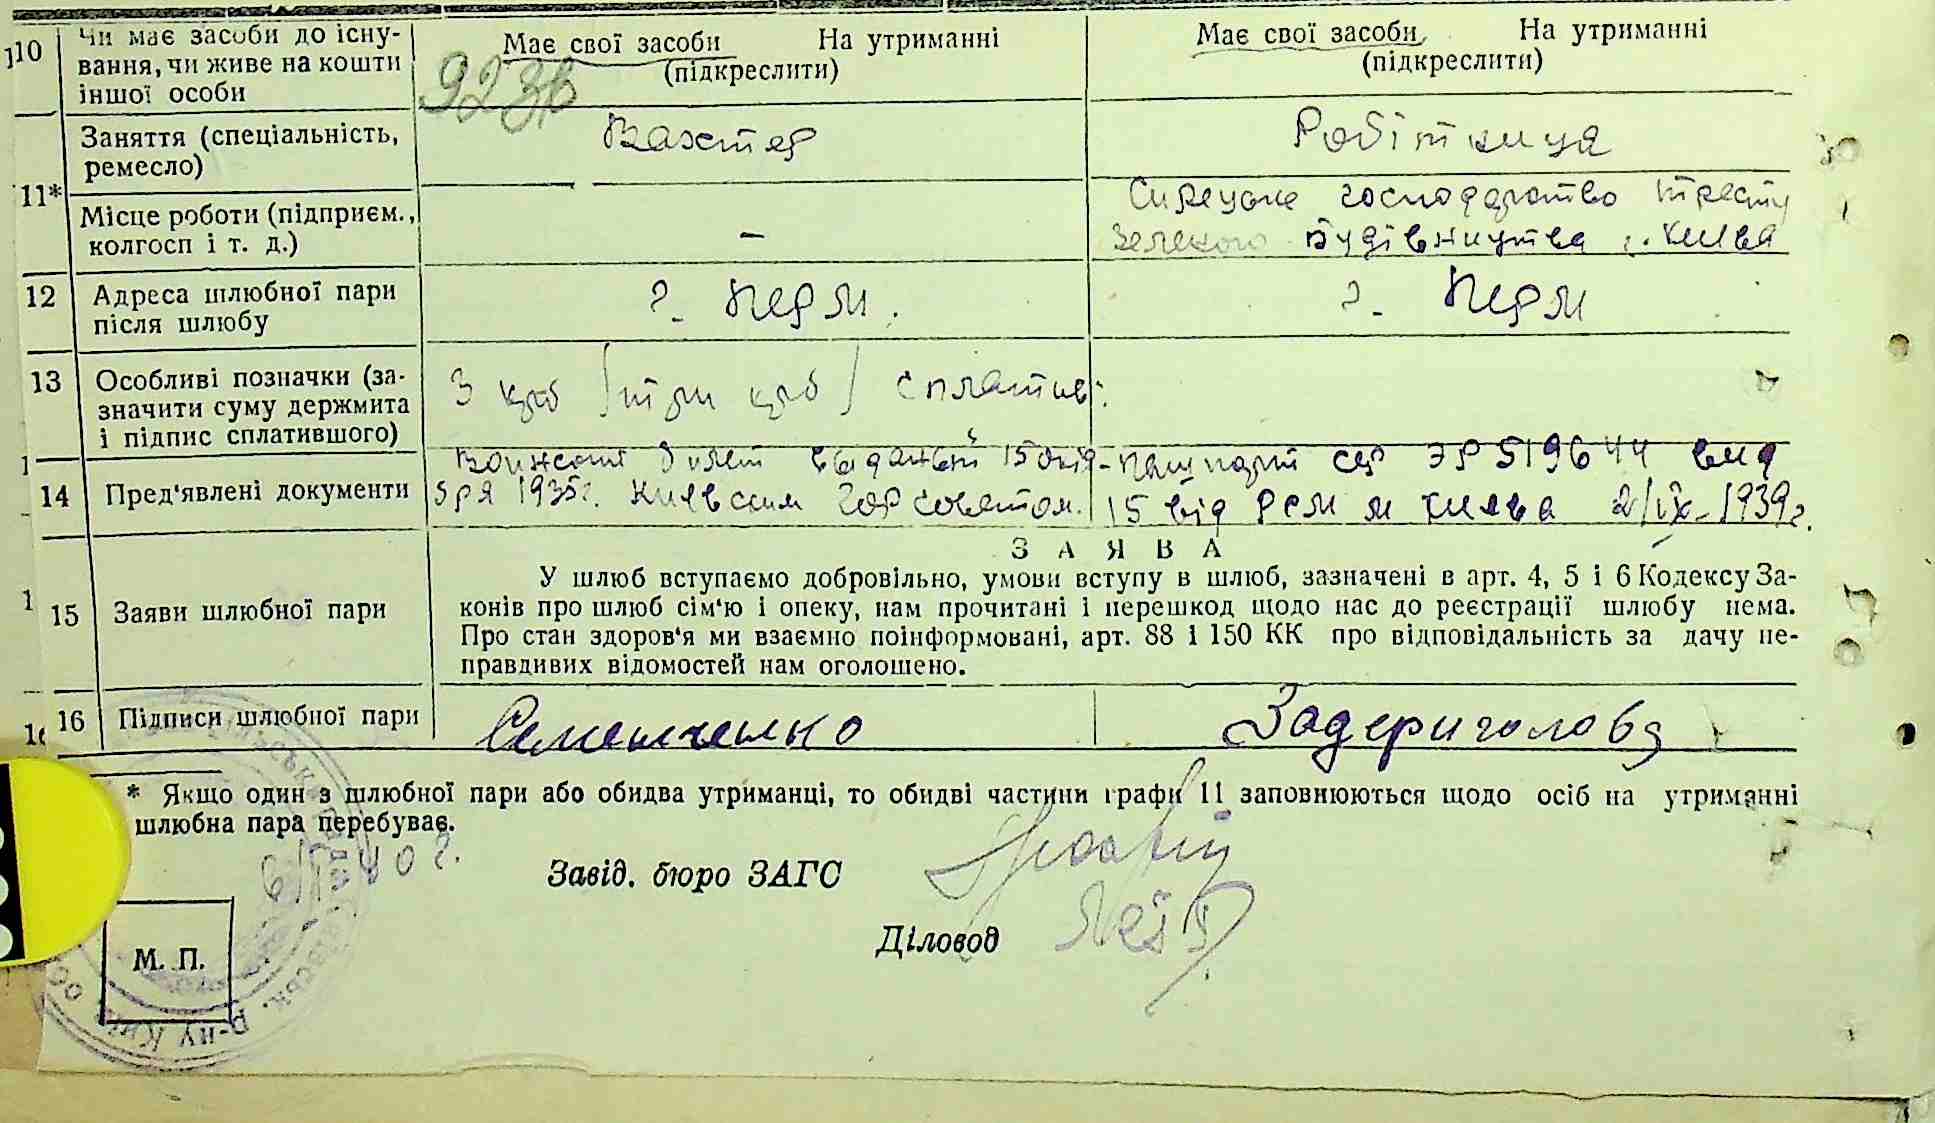 10 Чи має засоби до існування, чи живе на кошти іншої особи
Має свої засоби На утриманні
(підкреслити)
Має свої засоби На утриманні
(підкреслити)
11*
Заняття (спеціальність,
ремесло)
Вахтер
Робітниця
Місце роботи (підприєм.,
колгосп і т. д.)
–
Сирецьке господарство тресту
зеленого будівництва г. Києва
12 Адреса шлюбної пари
після шлюбу
г. Перм.
г. Перм
13 Особливі позначки (за-
значити суму держмита
і підпис сплатившого)
3 крб /три крб/ сплатив:
14 Пред'явлені документи
билет выданный 15 октя-
бря 1935г. Киевским Горсоветом.
пашпорт сер ЭР 519644 вид
15 від РСМ м Києва 2/IX-1939г.
ЗАЯВА
15 Заяви шлюбної пари
У шлюб вступаємо добровільно, умови вступу в шлюб, зазначені в арт. 4, 5 і 6 Кодексу За-
конів про шлюб сім'ю і опеку, нам прочитані і перешкод щодо нас до реєстрації шлюбу нема.
Про стан здоров'я ми взаємно поінформовані, арт. 88 і 150 КК про відповідальність за дачу не-
правдивих відомостей нам оголошено.
16 Підписи шлюбної пари
Семенченко
Задериголова
* Якщо один з шлюбної пари або обидва утриманці, то обидві частини графи 11 заповнюються щодо осіб на утриманні
шлюбна пара перебуває.
40 г.
Завід. бюро ЗАГС
Діловод
М. П.